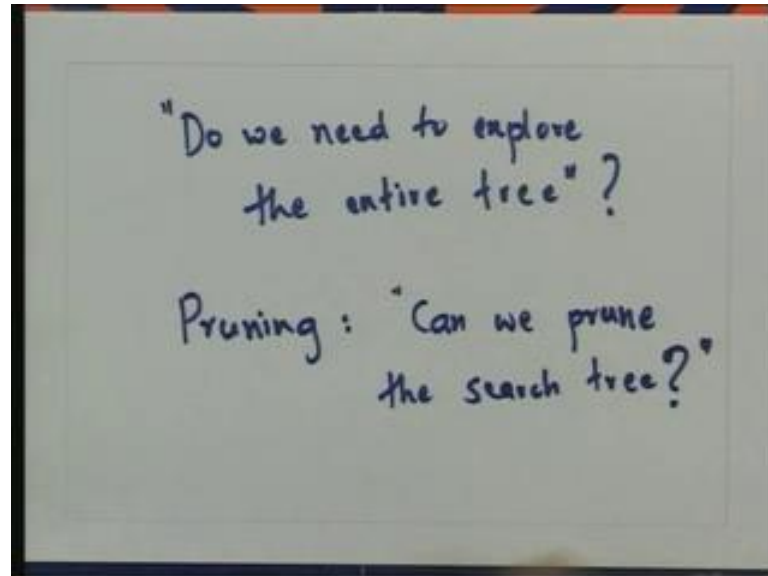 "Do we need to explore
the entire tree"?
Pruning: "Can we prune
the search tree?"